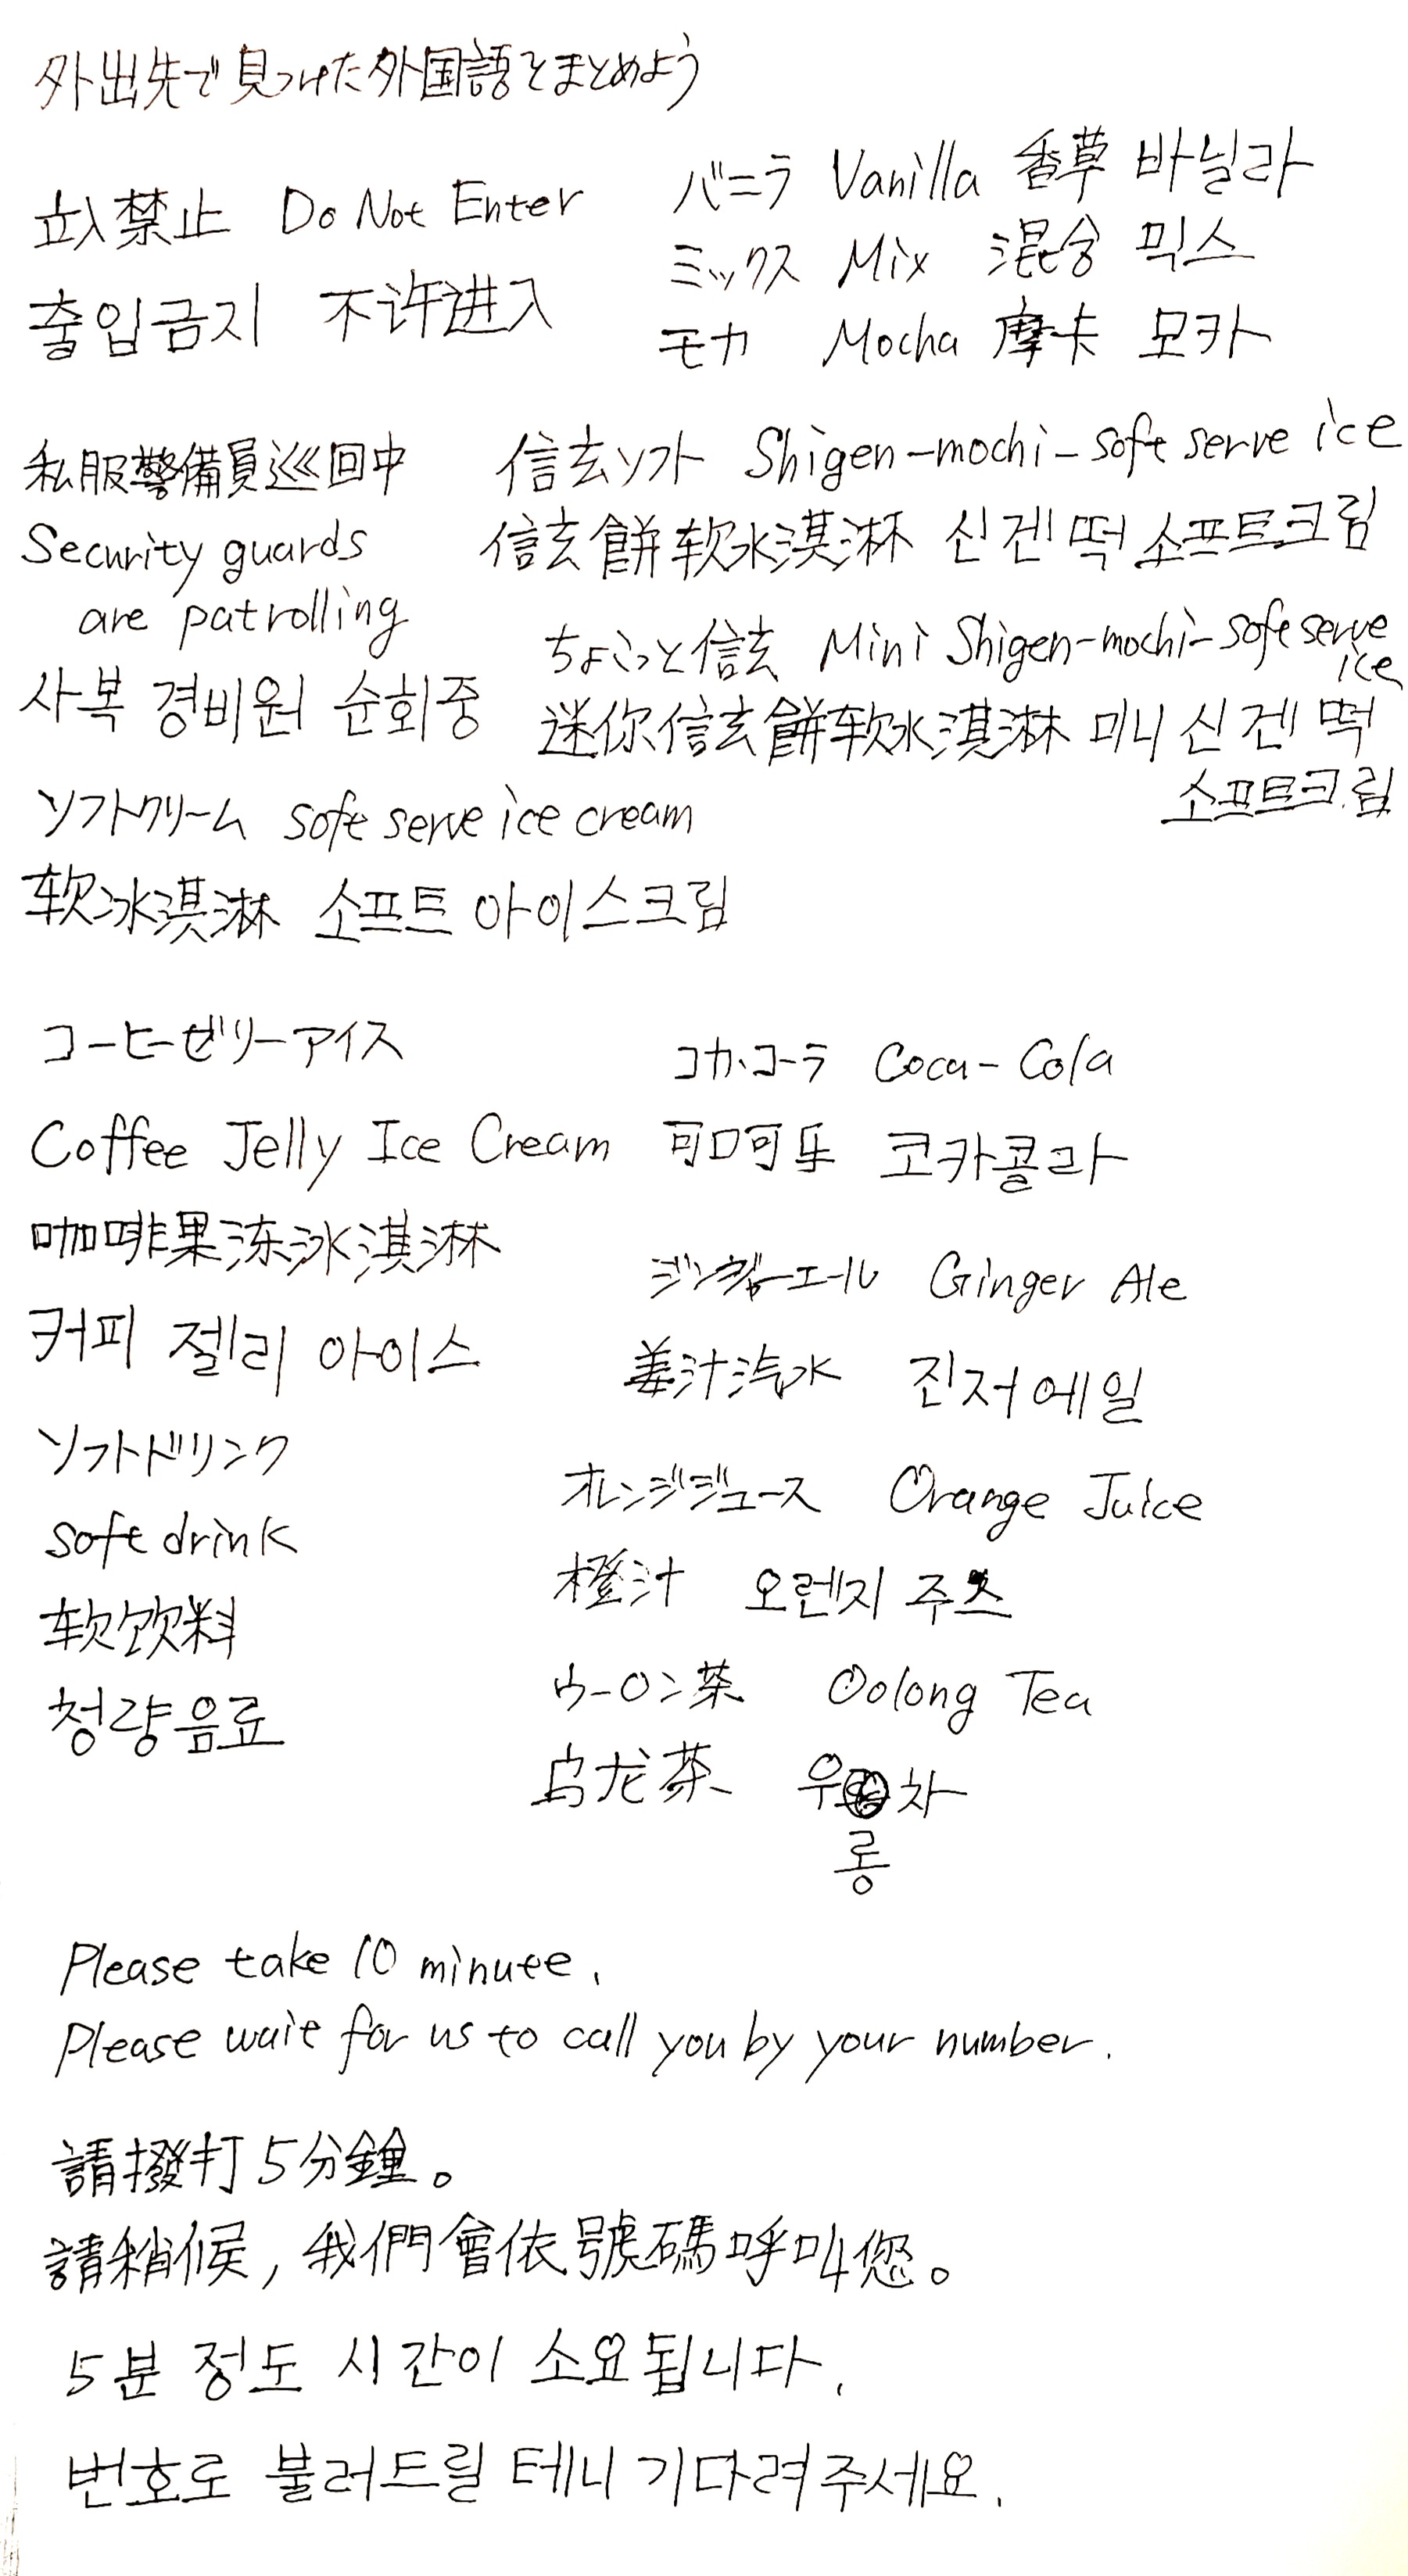 外出先で見つけた外国語をまとめよう
立入禁止 Do Not Enter
출입금지 不许进入
バニラ Vanilla 香草 바닐라
ミックス Mix 混合 믹스
モカ Mocha 摩卡 모카
私服警備員巡回中
Security guards
are patrolling
사복 경비원 순회중
信玄ソフト Shigen-mochi-soft serve ice
信玄餅软冰淇淋 신겐떡 소프트크림
ちょこっと信玄 Mini Shigen-mochi-soft serve
ice
迷你信玄餅软冰淇淋 미니 신겐떡
소프트크림
ソフトクリーム soft serve ice cream
软冰淇淋 소프트 아이스크림
コーヒーゼリーアイス
Coffee Jelly Ice Cream
咖啡果冻冰淇淋
커피 젤리 아이스
ソフトドリンク
soft drink
软饮料
청량음료
コカ・コーラ Coca-Cola
可口可乐 코카콜라
ジンジャーエール Ginger Ale
姜汁汽水 진저에일
オレンジジュース Orange Juice
橙汁 오렌지 주스
ウーロン茶 Oolong Tea
乌龙茶 우롱차
Please take 10 minute.
Please wait for us to call you by your number.
請撥打5分鐘。
請稍候,我們會依號碼呼叫您。
5분 정도 시간이 소요됩니다.
번호로 불러드릴 테니 기다려주세요.